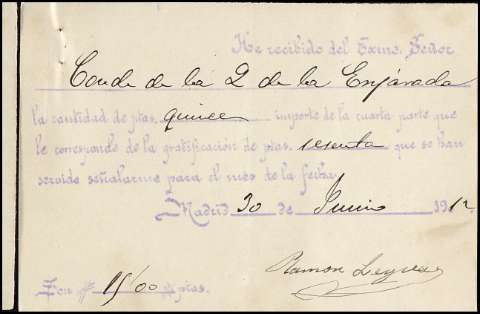 He recibido del Excmo. Señor
Conde de la Q de la Enjarada
la cantidad de ptas. quince importe de la cuarta parte que
le corresponde de la gratificación de ptas. sesenta que se han
servido señalarme para el mes de la fecha.
Madrid 30 de Junio 1912
Ramon Leyva
Son # 15/00 # ptas.